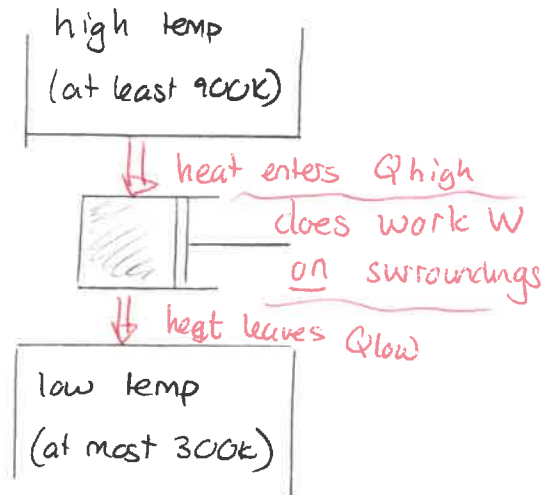 high temp
(at least 900K)
heat enters Qhigh
does work W
on surroundings
heat leaves Qlow
low temp
(at most 300K)